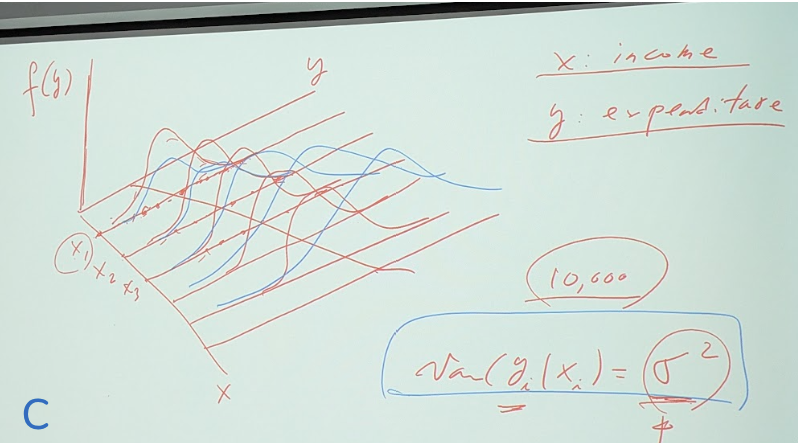 f(y)
y
x: income
y: expenditure
x₁
x₂
x₃
x
10,000
Var(yᵢ|xᵢ) = σ²
C